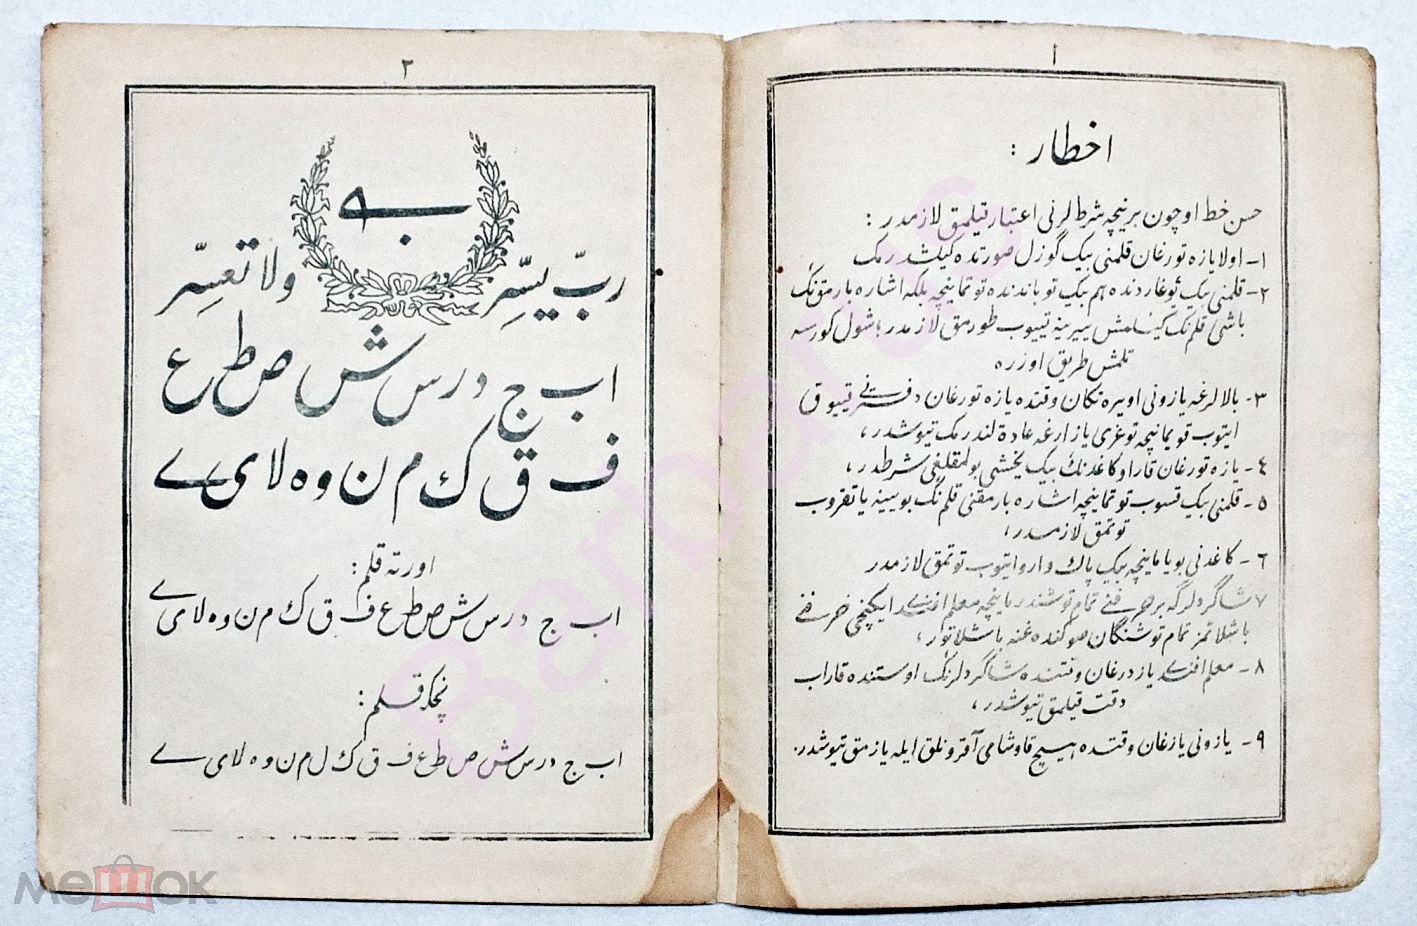 ١
اخطار :
حسن خط اوچون برنیچه شرطلرنی اعتبار قیلمق لازمدر :
١- اولا یازه تورغان قلمنی بیک گوزل صورتده کیلشدرمک
٢- قلمنی بیک یوغاردنده هم بیک توباندنده توتماینچه بلکه اشاره بارمقنڭ
باشی قلم نڭ سیرینه تییوب طورمق لازمدر ؛ شول کورسه
تلمش طریق اوزره
٣- بالالرغه یازونی اویره تکان وقتده یازه تورغان دفترنی
ایتوب قویماینچه توغری یازارغه عادة لندرمک تیوشدر ،
٤- یازه تورغان قارا و کاغدنڭ بیک یخشی بولمقلغی شرطدر ،
٥- قلمنی بیک قسوب توتماینچه اشاره بارمقنی قلم نڭ بویینه یاتقروب
توتمق لازمدر ،
٦- کاغدنی بویاماینچه بیک پاک و اروایتوب توتمق لازمدر
٧ شاگردلرگه بر حرفنی تمام توشندرماینچه معلم افندی ایکنچی حرفنی
باشلاتمز تمام توشنگان صوکنده غنه باشلاتور ،
٨- معلم افندی یازدرغان وقتنده شاگردلرنڭ اوستنده قاراب
دقت قیلمق تیوشدر ،
٩- یازونی یازغان وقتده هیچ قاوشامی آقرونلق ایله یازمق تیوشدر.
٢
به
ربّ یسّر ولا تعسّر
ا ب ج د ر س ش ص ط ع
ف ق ک م ن و ه لا ی ے
اورته قلم :
ا ب ج د ر س ش ص ط ع ف ق ک م ن و ه لا ی ے
نچکه قلم :
ا ب ج د ر س ش ص ط ع ف ق ک ل م ن و ه لا ی ے
Barbarus
мешок